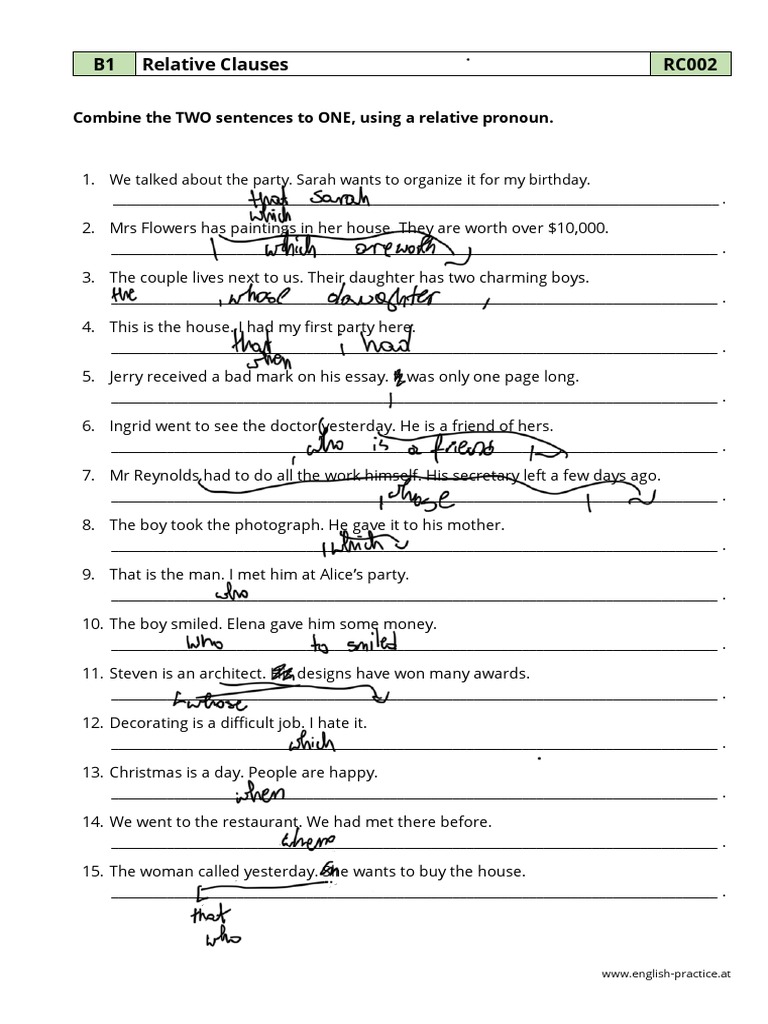 B1 Relative Clauses RC002
Combine the TWO sentences to ONE, using a relative pronoun.
1. We talked about the party. Sarah wants to organize it for my birthday.
that Sarah
which
2. Mrs Flowers has paintings in her house. They are worth over $10,000.
which are worth
3. The couple lives next to us. Their daughter has two charming boys.
the , whose daughter ,
4. This is the house. I had my first party here.
that , had
5. Jerry received a bad mark on his essay. was only one page long.
6. Ingrid went to see the doctor yesterday. He is a friend of hers.
, who is a friend
7. Mr Reynolds had to do all the work himself. His secretary left a few days ago.
, whose
8. The boy took the photograph. He gave it to his mother.
which
9. That is the man. I met him at Alice's party.
who
10. The boy smiled. Elena gave him some money.
who to smiled
11. Steven is an architect. designs have won many awards.
whose
12. Decorating is a difficult job. I hate it.
which
13. Christmas is a day. People are happy.
when
14. We went to the restaurant. We had met there before.
15. The woman called yesterday. She wants to buy the house.
that
who
www.english-practice.at